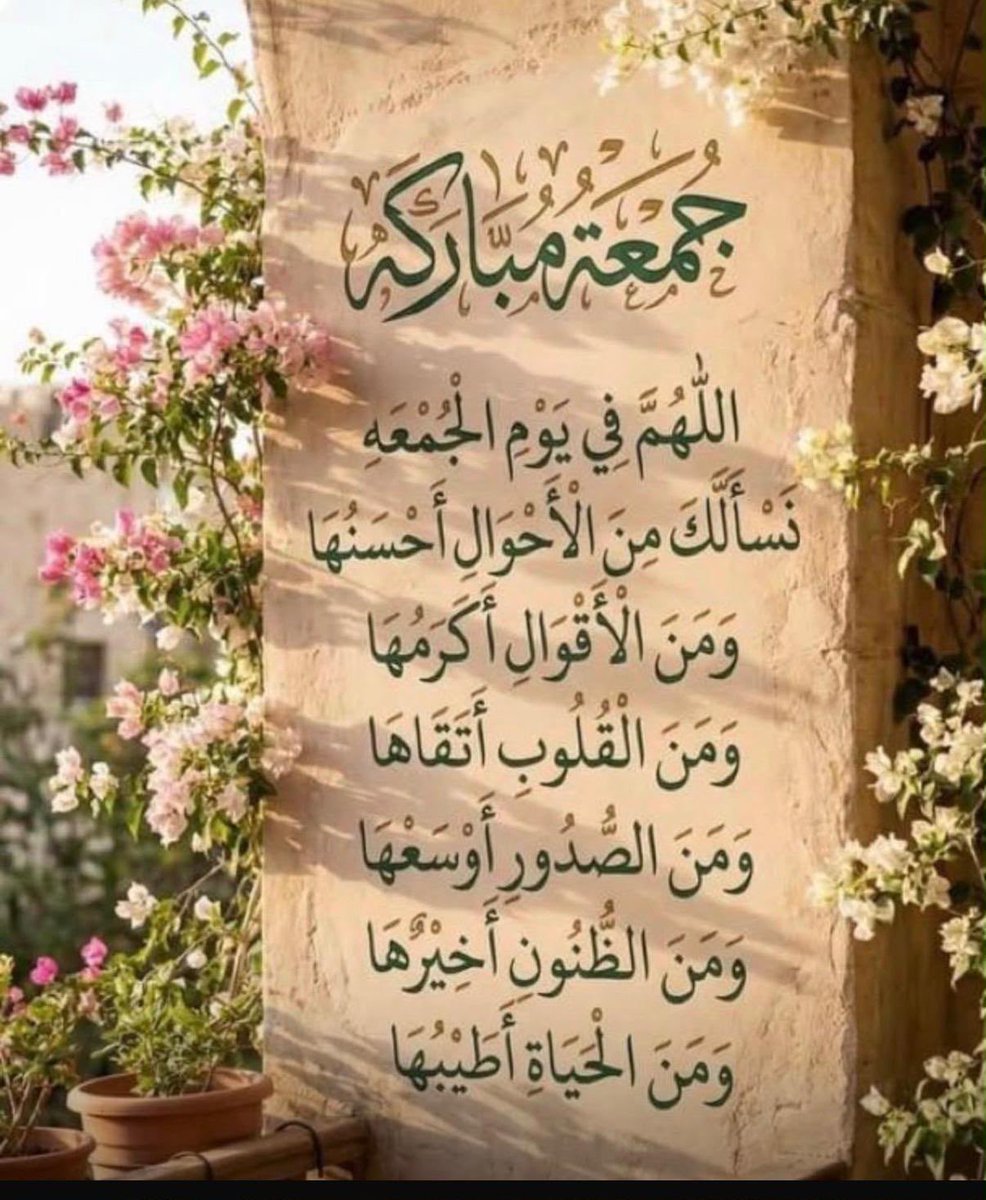 جُمُعَةٌ مُبَارَكَه
اللّٰهُمَّ فِي يَوْمِ الْجُمْعَهِ
نَسْأَلَّكَ مِنَ الْأَحْوَالِ أَحْسَنُهَا
وَمَنَ الْأَقْوَالِ أَكَرَمُهَا
وَمَنَ الْقُلُوبِ أَتَقَاهَا
وَمَنَ الصُّدُورِ أَوْسَعْهَا
وَمَنَ الظُّنُونِ أَخِيْرٌهَا
وَمَنَ الْحَيَاةِ أَطَيْبُهَا